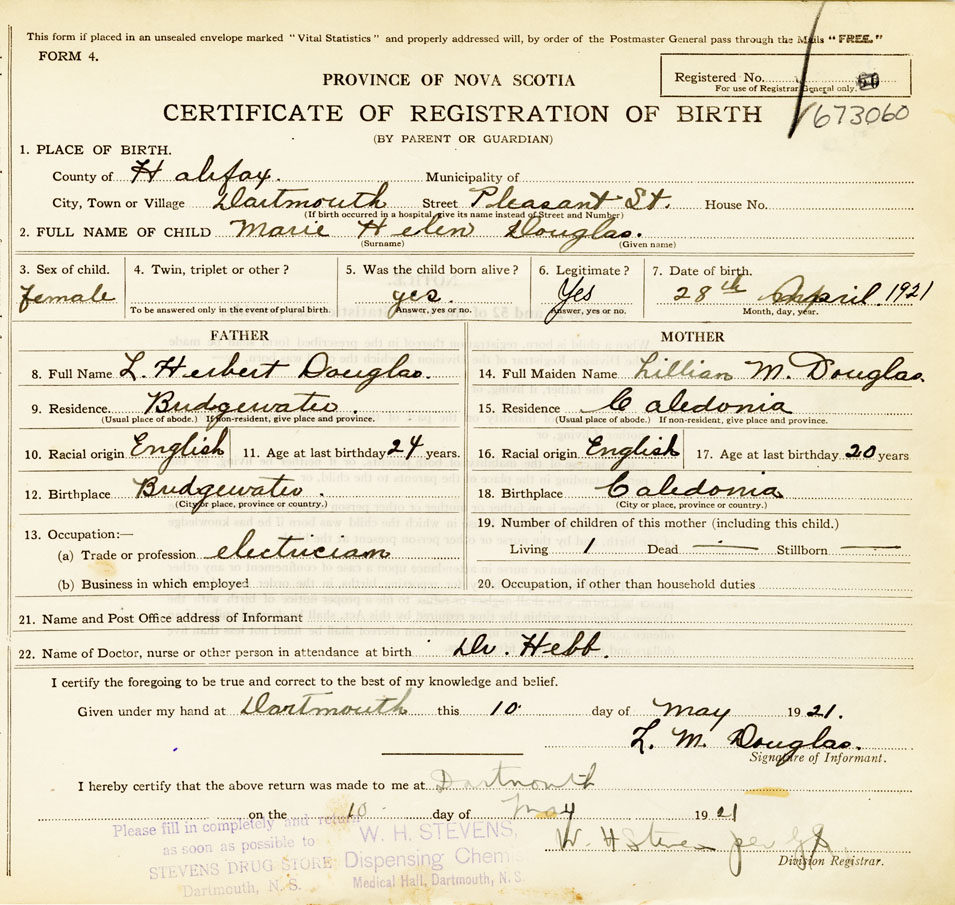 This form if placed in an unsealed envelope marked "Vital Statistics" and properly addressed will, by order of the Postmaster General pass through the Mails "FREE."
FORM 4.
PROVINCE OF NOVA SCOTIA
Registered No.
For use of Registrar General only.
CERTIFICATE OF REGISTRATION OF BIRTH
673060
(BY PARENT OR GUARDIAN)
1. PLACE OF BIRTH.
County of Halifax. Municipality of
City, Town or Village Dartmouth Street Pleasant St. House No.
(If birth occurred in a hospital give its name instead of Street and Number)
2. FULL NAME OF CHILD Marie Helen Douglas.
(Surname) (Given name)
3. Sex of child. 4. Twin, triplet or other? 5. Was the child born alive? 6. Legitimate? 7. Date of birth.
female yes. Yes 28th April 1921
To be answered only in the event of plural birth. Answer, yes or no. Answer, yes or no. Month, day, year.
FATHER MOTHER
8. Full Name L. Herbert Douglas. 14. Full Maiden Name Lillian M. Douglas.
9. Residence. Bridgewater. 15. Residence Caledonia
(Usual place of abode.) If non-resident, give place and province. (Usual place of abode.) If non-resident, give place and province.
10. Racial origin English 11. Age at last birthday 24 years. 16. Racial origin English 17. Age at last birthday 20 years
12. Birthplace Bridgewater. 18. Birthplace Caledonia
(City or place, province or country.) (City or place, province or country.)
19. Number of children of this mother (including this child.)
13. Occupation:—
(a) Trade or profession electrician Living 1 Dead — Stillborn —
(b) Business in which employed 20. Occupation, if other than household duties
21. Name and Post Office address of Informant
22. Name of Doctor, nurse or other person in attendance at birth Dr. Hebb.
I certify the foregoing to be true and correct to the best of my knowledge and belief.
Given under my hand at Dartmouth this 10 day of May 1921.
L. M. Douglas.
Signature of Informant.
I hereby certify that the above return was made to me at Dartmouth
on the 10 day of May 1921
W. H Stevens per
Division Registrar.
Please fill in completely and return
as soon as possible to
STEVENS DRUG STORE
Dartmouth, N. S.
W. H. STEVENS,
Dispensing Chemist
Medical Hall, Dartmouth, N. S.